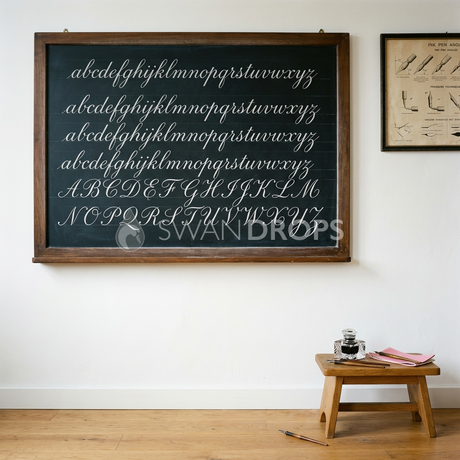 abcdefghijklmnopqrstuvwxyz
abcdefghijklmnopqrstuvwxyz
abcdefghijklmnopqrstuvwxyz
abcdefghijklmnopqrstuvwxyz
ABCDEFGHIJKLM
NOPQRSTUVWXYZ
SWANDROPS
INK PEN ANG